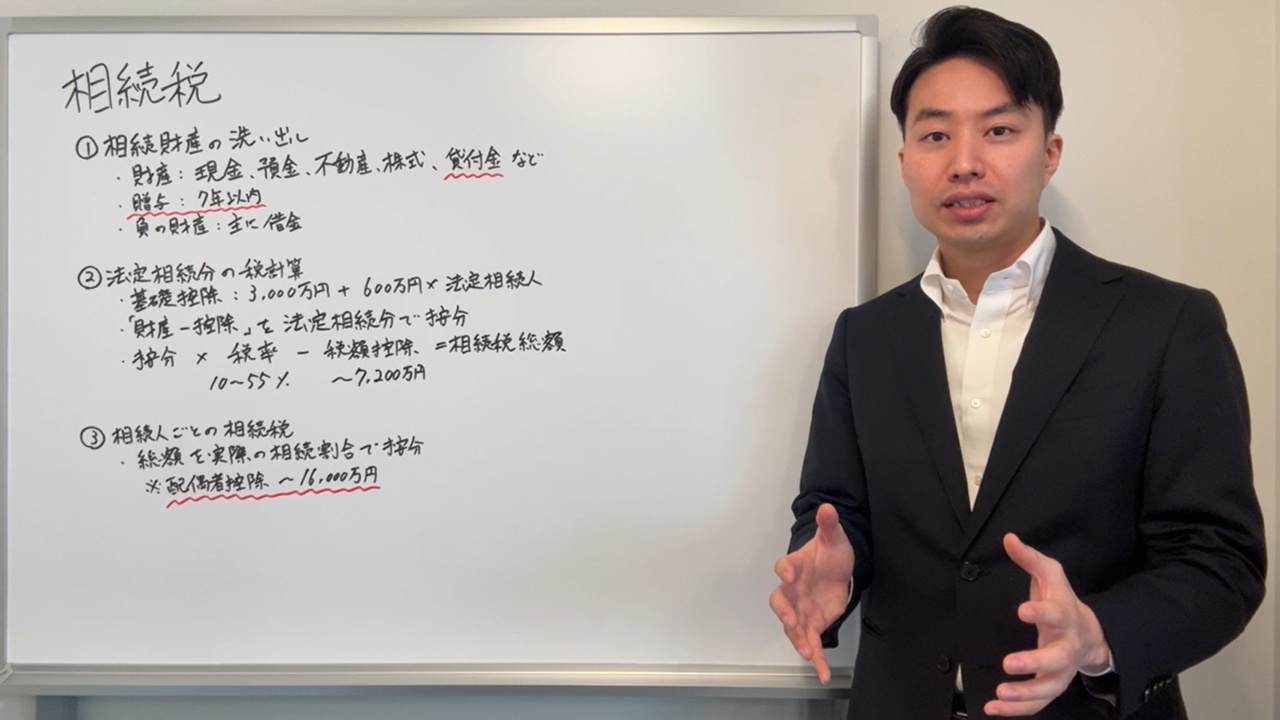 相続税
① 相続財産の洗い出し
・財産：現金、預金、不動産、株式、貸付金 など
・贈与：7年以内
・負の財産：主に借金
② 法定相続分の税計算
・基礎控除：3,000万円 + 600万円 × 法定相続人
・「財産－控除」を法定相続分で按分
・按分 × 税率 － 税額控除 = 相続税総額
10～55% ～7,200万円
③ 相続人ごとの相続税
・総額を実際の相続割合で按分
※配偶者控除 ～16,000万円